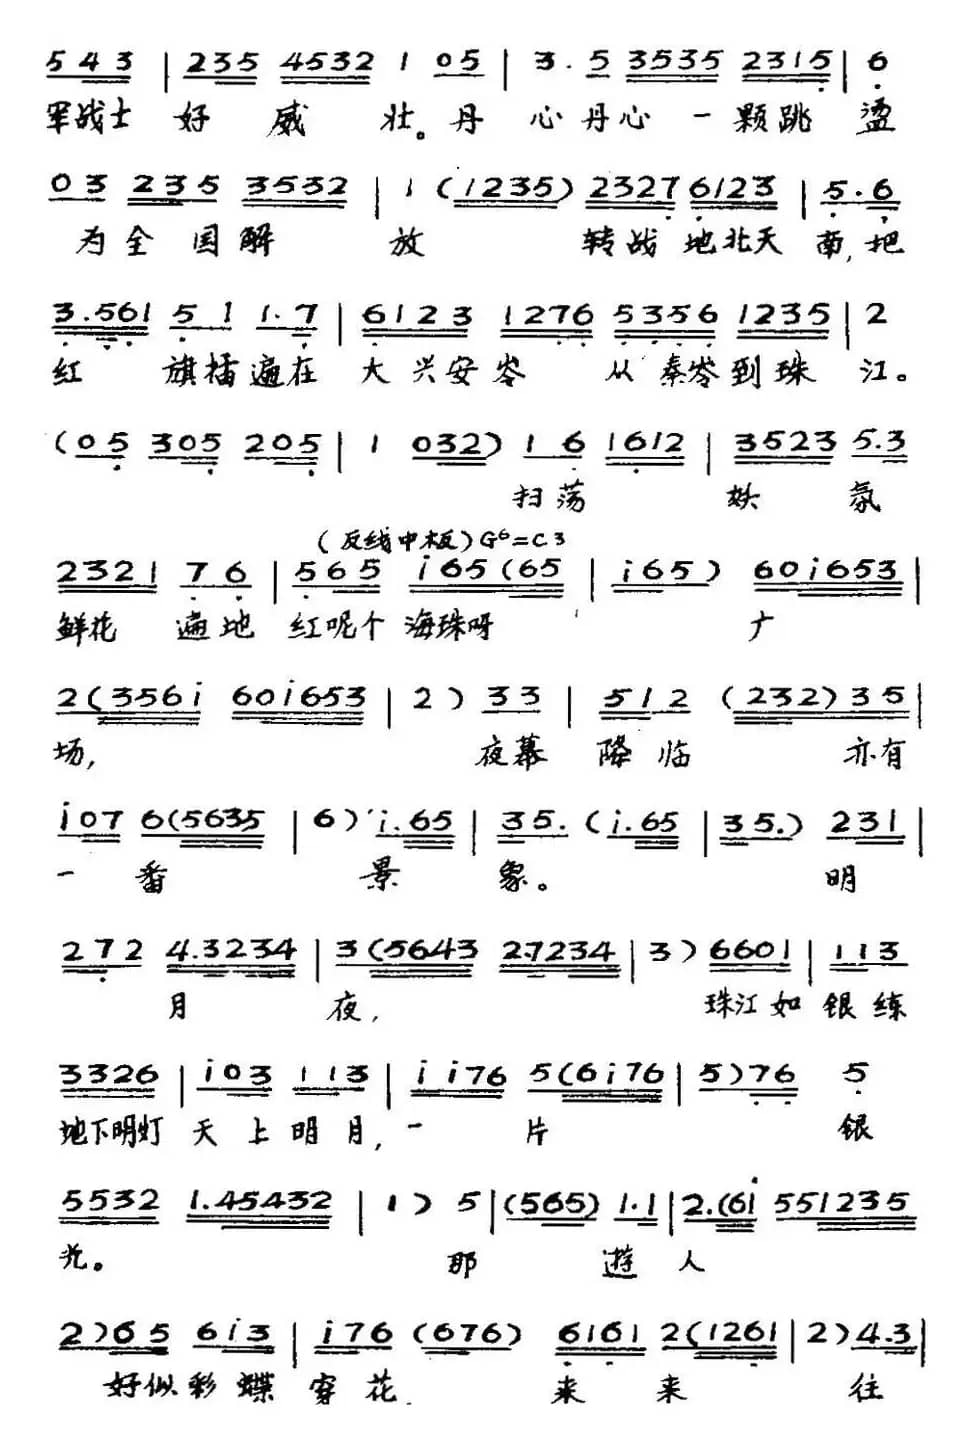 5 4 3 | 2 3 5 4 5 3 2 1 0 5 | 3 . 5 3 5 3 5 2 3 1 5 | 6
军战士 好 威 壮。丹 心 丹 心 一 颗 跳 盪
0 3 2 3 5 3 5 3 2 | 1 ( 1 2 3 5 ) 2 3 2 7 6 1 2 3 | 5 . 6
为 全 国 解 放 转 战 地 北 天 南, 把
3 . 5 6 1 5 1 1 . 7 | 6 1 2 3 1 2 7 6 5 3 5 6 1 2 3 5 | 2
红 旗 插 遍 在 大 兴 安 岺 从 秦 岺 到 珠 江。
( 0 5 3 0 5 2 0 5 | 1 0 3 2 ) 1 6 1 6 1 2 | 3 5 2 3 5 . 3
扫 荡 妖 氛
(反线中板) G6=C3
2 3 2 1 7 6 | 5 6 5 i 6 5 ( 6 5 | i 6 5 ) 6 0 i 6 5 3 |
鲜花 遍 地 红 呢 个 海 珠 呀 广
2 ( 3 5 6 i 6 0 i 6 5 3 | 2 ) 3 3 | 5 1 2 ( 2 3 2 ) 3 5 |
场, 夜 幕 降 临 亦 有
i 0 7 6 ( 5 6 3 5 | 6 ) i . 6 5 | 3 5 . ( i . 6 5 | 3 5 . ) 2 3 1 |
一 番 景 象。 明
2 7 2 4 . 3 2 3 4 | 3 ( 5 6 4 3 2 . 7 2 3 4 | 3 ) 6 6 0 1 | 1 1 3
月 夜, 珠 江 如 银 练
3 3 2 6 | i 0 3 1 1 3 | i i 7 6 5 ( 6 i 7 6 | 5 ) 7 6 5
地下明灯 天 上 明 月, 一 片 银
5 5 3 2 1 . 4 5 4 3 2 | 1 ) 5 | ( 5 6 5 ) 1 . 1 | 2 . ( 6 i 5 5 1 2 3 5
光。 那 遊 人
2 ) 6 5 6 i 3 | i 7 6 ( 6 7 6 ) 6 1 6 1 2 ( 1 2 6 1 | 2 ) 4 . 3 |
好 似 彩 蝶 穿 花 来 来 往